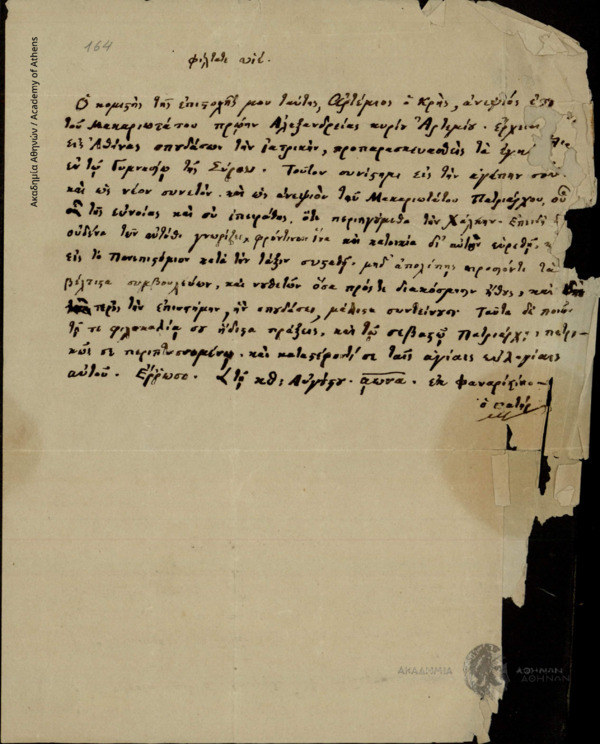 164
φίλτατε υἱέ.
Ὁ κομιστὴς τῆς ἐπιστολῆς μου ταύτης, Ἀρτέμιος ὁ Κρὴς, ἀνεψιός
τοῦ Μακαριωτάτου πρώην Ἀλεξανδρείας κυρίου Ἀρτεμίου. ἔρχεται
εἰς Ἀθήνας σπουδάσων τὴν ἰατρικὴν, προπαρασκευασθεὶς τὰ
ἐν τῷ Γυμνασίῳ τῆς Σύρου. Τοῦτον συνίστημι εἰς τὴν ἀγάπην σου
καὶ ὡς νέον συνετὸν. καὶ ὡς ἀνεψιὸν τοῦ Μακαριωτάτου Πατριάρχου, οὗ
τῆς εὐνοίας καὶ σὺ ἐπειράθης, ὅτε περιηγούμεθα τὴν Χάλκην. Ἐπειδὴ
οὐδένα τῶν αὐτόθι γνωρίζει, φρόντισον ἵνα καὶ κατοικία δι' αὐτὸν εὑρεθῇ,
εἰς τὸ Πανεπιστήμιον κατὰ τὴν τάξιν συσταθῇ. μηδ' ἀπολίπῃς τὰ
βέλτιστα συμβουλεύων, καὶ νουθετῶν ὅσα πρός τε διακόσμησιν ἤθους, καὶ
πρὸς τὴν ἐπιστήμην, ἣν σπουδάσει, μάλιστα συντείνουσι. Ταῦτα δὲ ποιῶν
τῇ τε φιλοκαλίᾳ σου ἥδιστα πράξεις, καὶ τῷ σεβαστῷ Πατριάρχῃ πατρι-
κῶς σε περιπτυσσομένῳ. καὶ καταστέφοντί σε ταῖς ἁγίαις εὐλογίαις
αὐτοῦ. Ἔρρωσο. τῇ κθ: Αὐγούστου. αωνα. ἐκ Φαναρίου
ὁ πατήρ
Ακαδημία Αθηνών / Academy of Athens
ΑΚΑΔΗΜΙΑ
ΑΘΗΝΩΝ